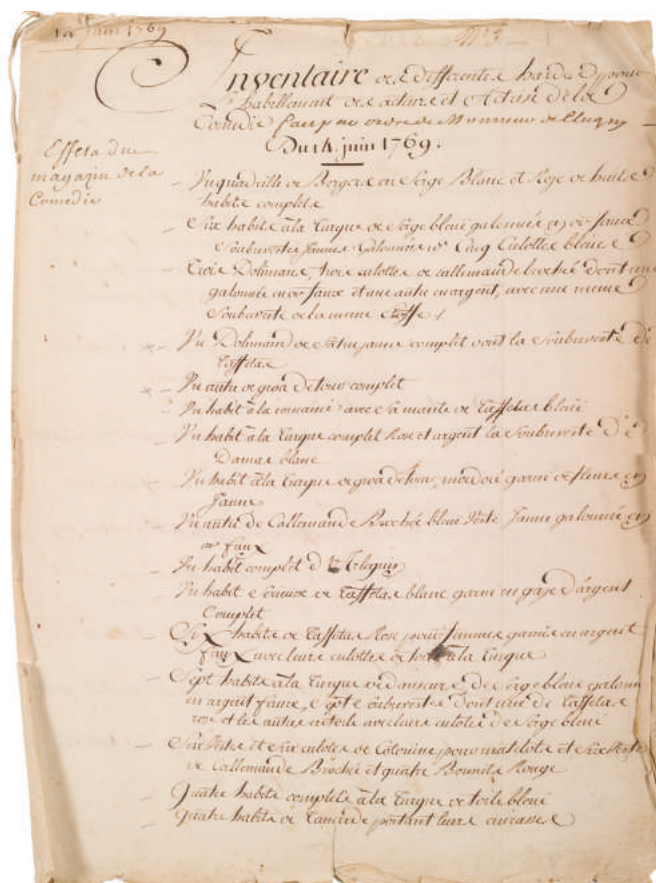 14 juin 1769
N° 3
Inventaire des differentes hardes pour
L'habillement des acteurs et Actrises de la
Comedie fait par ordre de Monsieur de Clugny
Du 14. juin 1769.
Effets du
magazin de la
Comedie
Un quadrille de Bergers en Serge Blanc et Rose de huit
habits complets
Six habits à la turque de Serge bleüe galonnées en or faux
Soubrevestes jaunes Galonnées Cinq Culottes bleües
Trois Dolimans, trois culottes de callemande brochée dont une
galonnée en or faux et une autre en argent, avec une meme
Soubreveste de la meme Etoffe
Un Dolimand de Satin jaune complet dont la Soubreveste de
taffetas
Un autre de gros de tour complet
Un habit à la romaine avec Sa mante de taffetas bleüe
Un habit à la turque complet Rose et argent la Soubreveste de
Damas blanc
Un habit à la turque de gros de tour, mordoré garni de fleurs en
jaune
Un autre de Callemande Brochée bleüe Verte Jaune galonnée en
or faux
Un habit complet d'Arlequin
Un habit Serieux de taffetas blanc garni en gaze d'argent
Complet
Six habits de taffetas Rose pour femmes garnis en argent
faux avec leurs culottes de à la turque
Sept habits à la turque de danseurs de Serge bleüe galonn
en argent faux, Sept Soubrevestes Dont une de taffetas
rose et les autres en toile avec leurs culotes de Serge bleüe
Six Vestes et Six culotes de Cotonine pour matelots et Six Vestes
de Callemande Brochée et quatre Bonnets Rouge
Quatre habits complets à la turque de toile bleüe
Quatre habits de portant leurs cuirasses